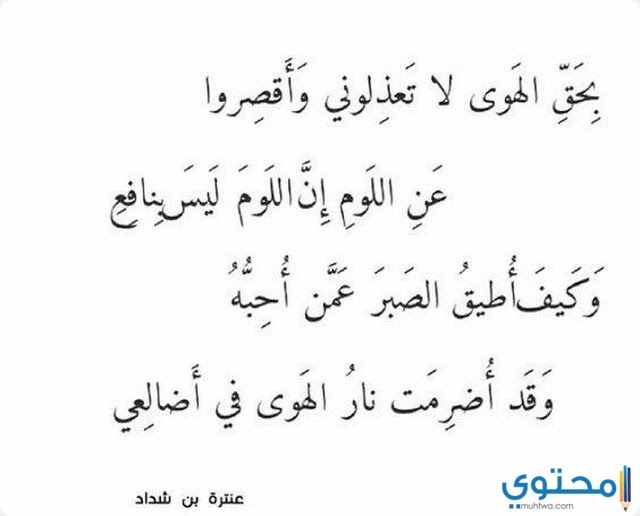 بِحَقِّ الهَوى لا تَعذِلوني وَأَقصِروا
عَنِ اللَومِ إِنَّ اللَومَ لَيسَ بِنافِعِ
وَكَيفَ أُطيقُ الصَبرَ عَمَّن أُحِبُّهُ
وَقَد أُضرِمَت نارُ الهَوى في أَضالِعي
عنترة بن شداد
محتوي
muhtwa.com